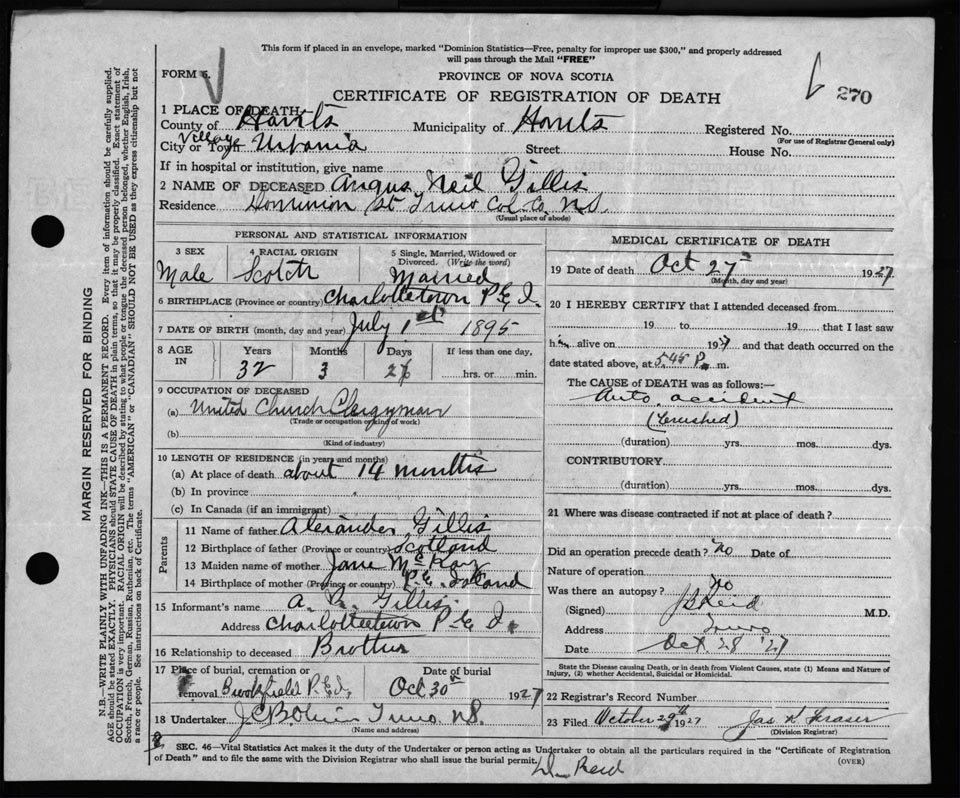 This form if placed in an envelope, marked "Dominion Statistics—Free, penalty for improper use $300," and properly addressed
will pass through the Mail "FREE"
FORM 6.
PROVINCE OF NOVA SCOTIA
270
CERTIFICATE OF REGISTRATION OF DEATH
1 PLACE OF DEATH
County of Hants Municipality of Hants Registered No.
(For use of Registrar General only)
Village
City or Town Urbania Street House No.
If in hospital or institution, give name
2 NAME OF DECEASED Angus Neil Gillis
Residence Dominion St Truro Col. Co. N.S.
(Usual place of abode)
PERSONAL AND STATISTICAL INFORMATION
3 SEX Male
4 RACIAL ORIGIN Scotch
5 Single, Married, Widowed or
Divorced. (Write the word)
Married
6 BIRTHPLACE (Province or country) Charlottetown P.E.I.
7 DATE OF BIRTH (month, day and year) July 1st 1895
8 AGE IN
Years Months Days If less than one day,
32 3 26 hrs. or min.
9 OCCUPATION OF DECEASED
(a) United Church Clergyman
(Trade or occupation or kind of work)
(b)
(Kind of industry)
10 LENGTH OF RESIDENCE (in years and months)
(a) At place of death about 14 months
(b) In province
(c) In Canada (if an immigrant)
Parents
11 Name of father Alexander Gillis
12 Birthplace of father (Province or country) Scotland
13 Maiden name of mother Jane McKay
14 Birthplace of mother (Province or country) P.E. Island
15 Informant's name A. Gillis
Address Charlottetown P.E.I.
16 Relationship to deceased Brother
17 Place of burial, cremation or Date of burial
removal Brookfield P.E.I. Oct 30th 1927
18 Undertaker Truro N.S.
(Name and address)
MEDICAL CERTIFICATE OF DEATH
19 Date of death Oct 27th 1927
(Month, day and year)
20 I HEREBY CERTIFY that I attended deceased from
19 to 19 that I last saw
h alive on 1927 and that death occurred on the
date stated above, at 5.45 P. m.
The CAUSE of DEATH was as follows:—
Auto accident
(Crushed)
(duration) yrs. mos. dys.
CONTRIBUTORY
(duration) yrs. mos. dys.
21 Where was disease contracted if not at place of death?
Did an operation precede death? No Date of
Nature of operation
Was there an autopsy? No
(Signed) Reid M.D.
Address Truro
Date Oct 28 '27
State the Disease causing Death, or in death from Violent Causes, state (1) Means and Nature of
Injury, (2) whether Accidental, Suicidal or Homicidal.
22 Registrar's Record Number
23 Filed October 29th 1927 Jas Fraser
(Division Registrar)
SEC. 46—Vital Statistics Act makes it the duty of the Undertaker or person acting as Undertaker to obtain all the particulars required in the "Certificate of Registration
of Death" and to file the same with the Division Registrar who shall issue the burial permit.
(OVER)
Dr Reid
MARGIN RESERVED FOR BINDING
N.B.—WRITE PLAINLY WITH UNFADING INK—THIS IS A PERMANENT RECORD. Every item of information should be carefully supplied.
AGE should be stated EXACTLY. PHYSICIANS should STATE CAUSE OF DEATH in plain terms, so that it may be properly classified. Exact statement of
OCCUPATION is very important. RACIAL ORIGIN will be described by stating to what people or tongue the deceased person belonged, whether English, Irish,
Scotch, French, German, Russian, Ruthenian, etc. The terms "AMERICAN" or "CANADIAN" SHOULD NOT BE USED as they express citizenship but not
a race or people. See instructions on back of Certificate.